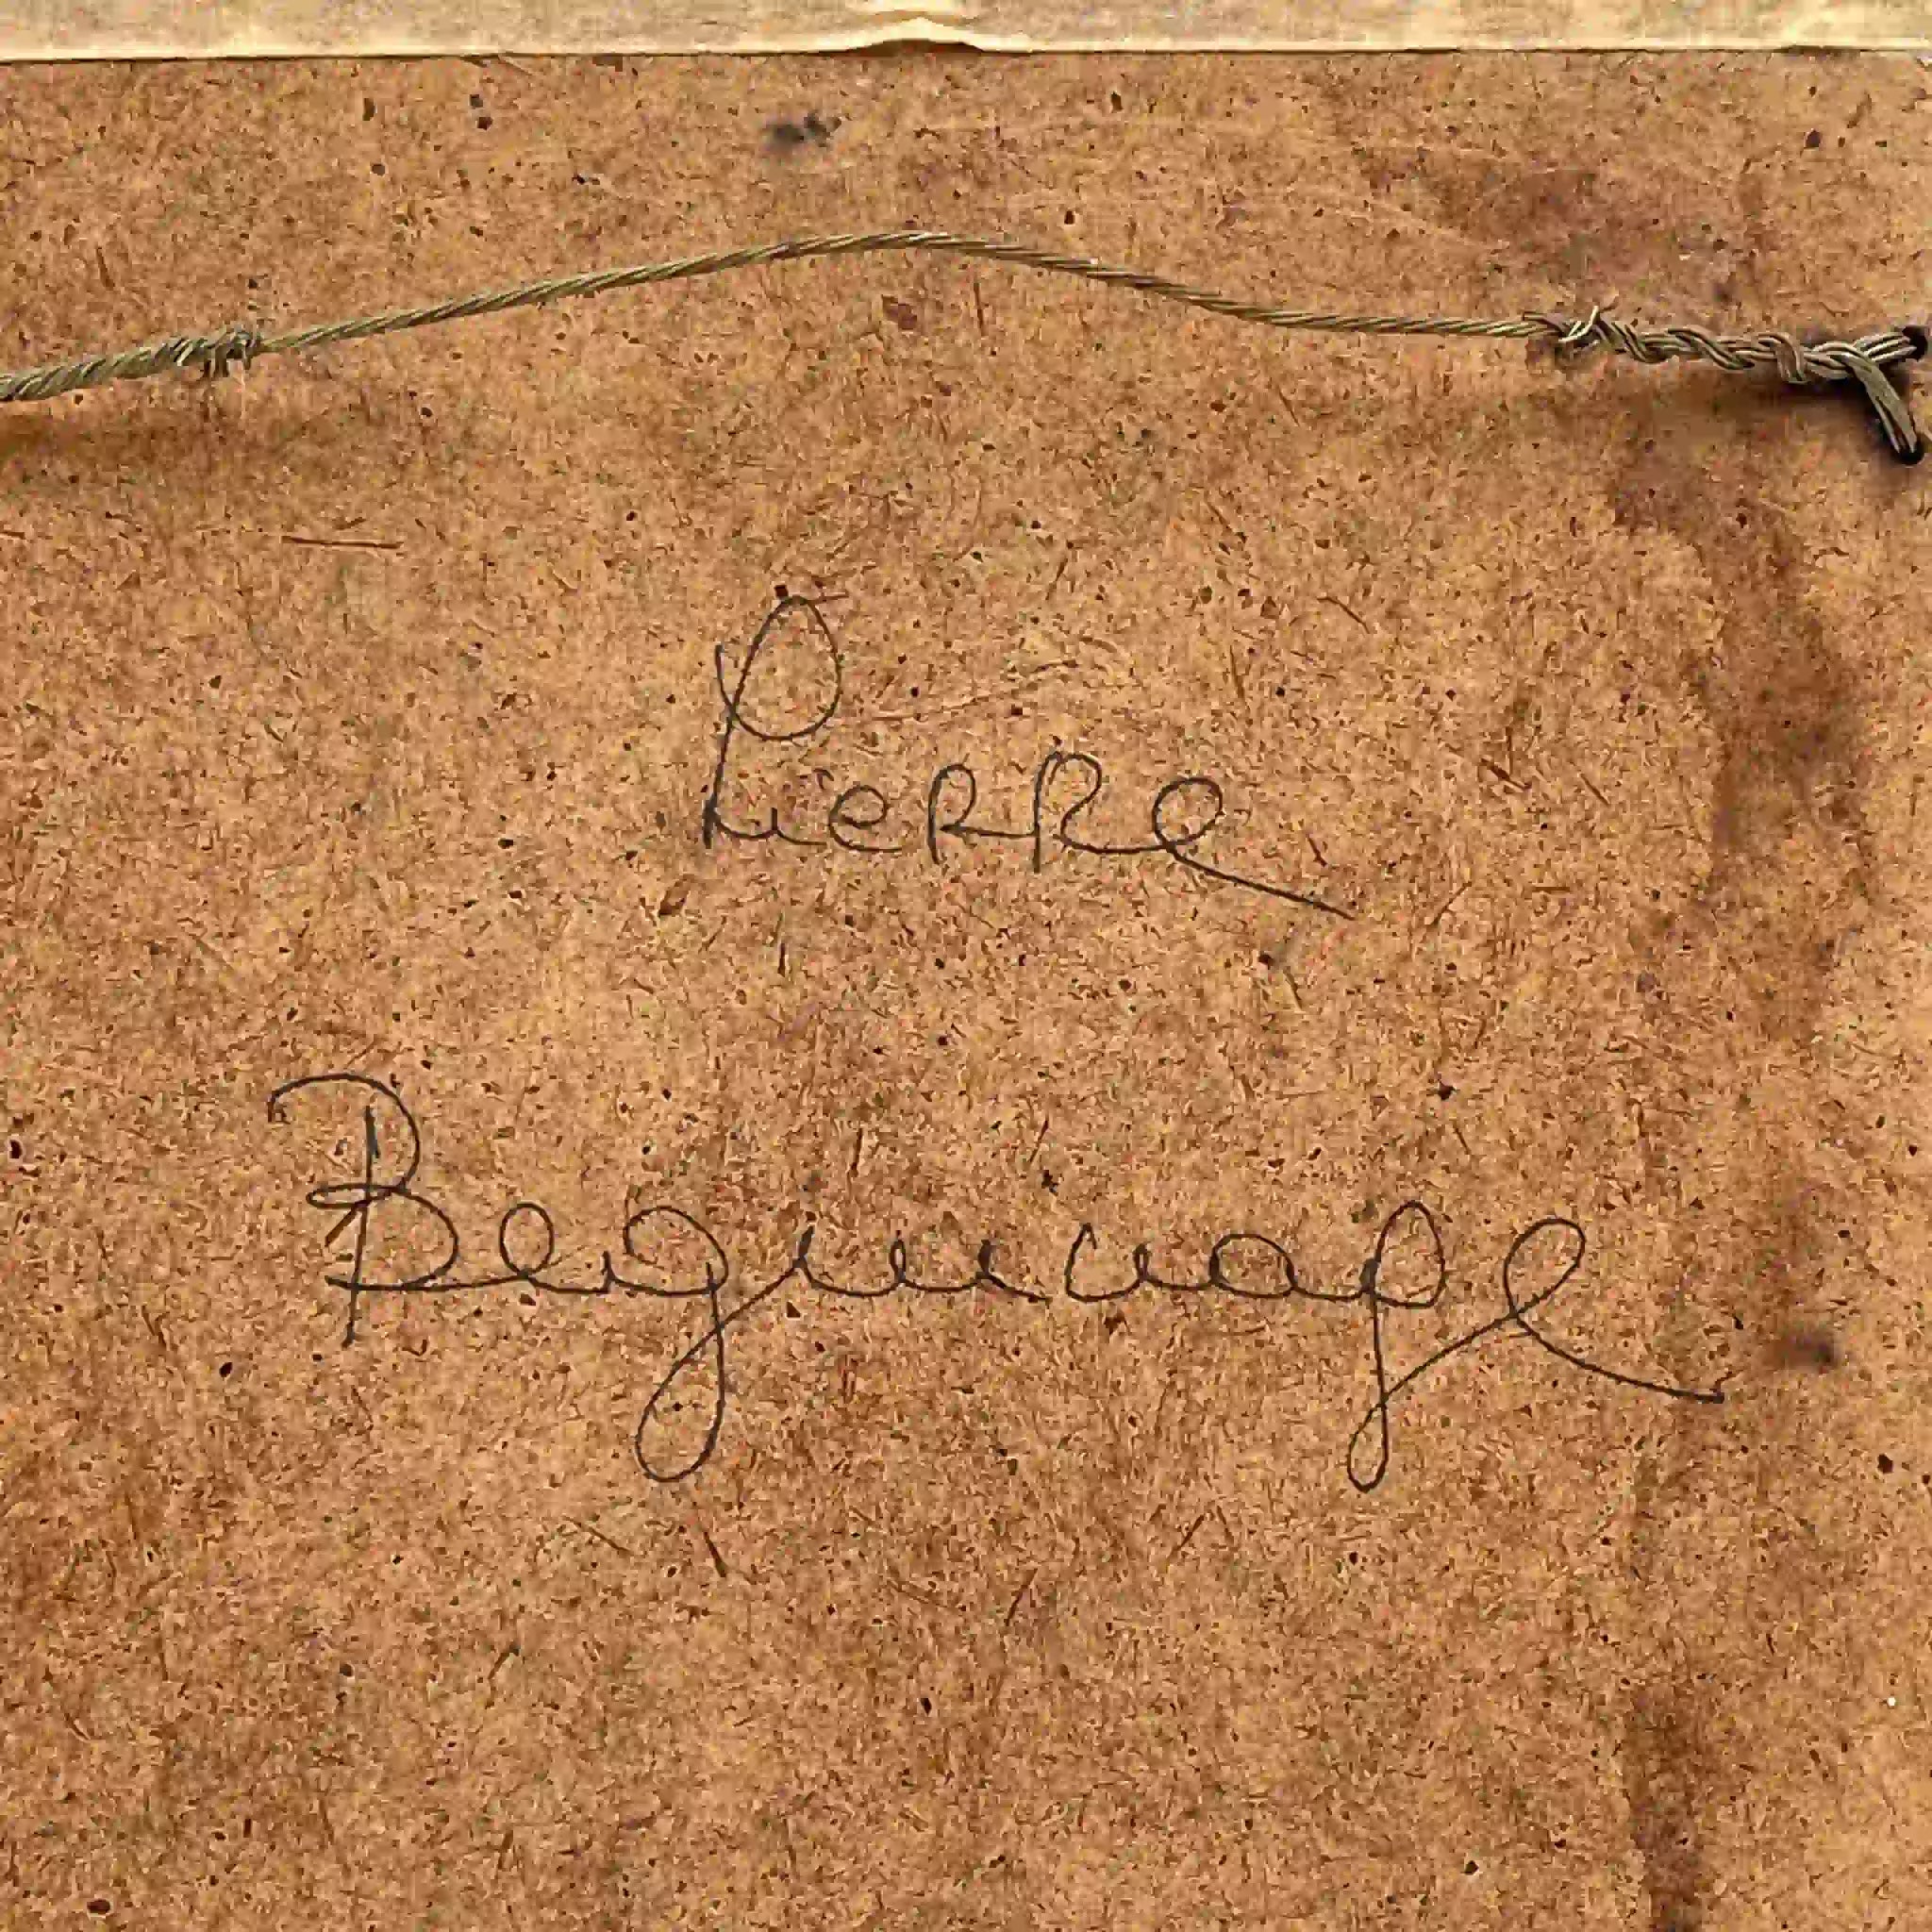 Pierre
Beguinage